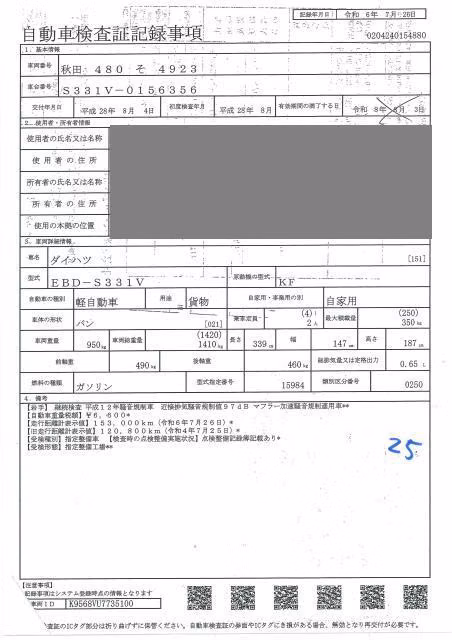 記録年月日 令和 6年 7月 26日
自動車検査証記録事項
0204240154880
1. 基本情報
車両番号 秋田 480 そ 4923
車台番号 S331V-0156356
交付年月日 平成 28年 8月 4日 初度検査年月 平成 28年 8月 有効期間の満了する日 令和 8年 8月 3日
2. 使用者・所有者情報
使用者の氏名又は名称
使用者の住所
所有者の氏名又は名称
所有者の住所
使用の本拠の位置
3. 車両詳細情報
車名 ダイハツ [151]
型式 EBD-S331V 原動機の型式 KF
自動車の種別 軽自動車 用途 貨物 自家用・事業用の別 自家用
車体の形状 バン [021] 乗車定員 (4) 2人 最大積載量 (250) 350kg
車両重量 950kg 車両総重量 (1420) 1410kg 長さ 339cm 幅 147cm 高さ 187cm
前軸重 490kg 後軸重 460kg 総排気量又は定格出力 0.65 L
燃料の種類 ガソリン 型式指定番号 15984 類別区分番号 0250
4. 備考
【岩手】 継続検査 平成12年騒音規制車 近接排気騒音規制値97dB マフラー加速騒音規制適用車**
【自動車重量税額】 ¥6,600*
【走行距離計表示値】 153,000km (令和6年7月26日)*
【旧走行距離計表示値】 120,800km (令和4年7月25日)*
【受検種別】指定整備車 【検査時の点検整備実施状況】点検整備記録簿記載あり*
【受検形態】指定整備工場**
25
【注意事項】
記録事項はシステム登録時点の情報となります
車両ID K9568VU7735100
検査証のICタグ部分は折り曲げずに保管ください。自動車検査証の券面やICタグにき損がある場合、無効となり再交付が必要です。